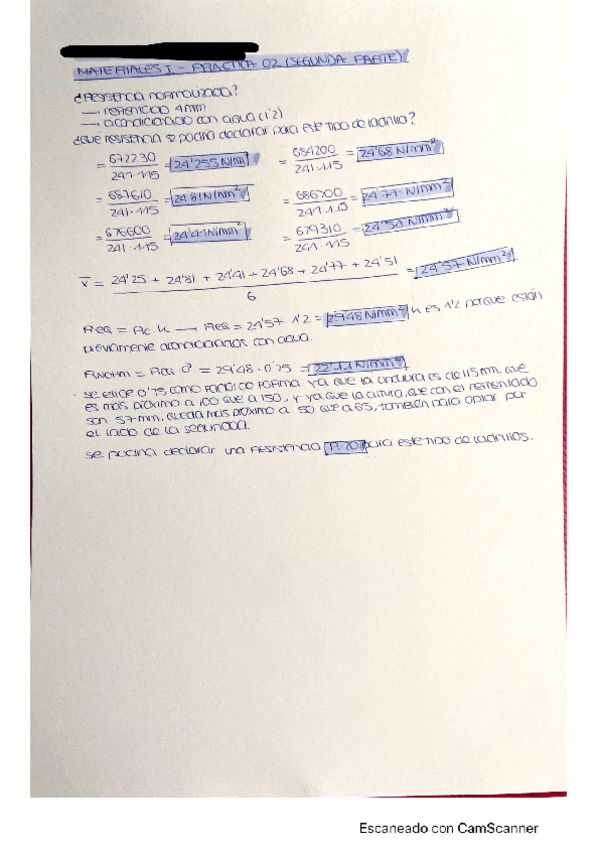 MATERIALES I - PRACTICA 02 (SEGUNDA PARTE)
¿RESISTENCIA NORMALIZADA?
→ REFRENTADO 4mm
→ acondicionado con agua (1'2)
¿Qué resistencia podría declarar para este tipo de ladrillo?
= 672230 / 241·115 = 24'255 N/mm = 684200 / 241·115 = 24'68 N/mm²
= 687610 / 241·115 = 24'81 N/mm² = 686700 / 241·115 = 24'77 N/mm²
= 676600 / 241·115 = 24'41 N/mm² = 679310 / 241·115 = 24'51 N/mm²
x̄ = 24'25 + 24'81 + 24'41 + 24'68 + 24'77 + 24'51 / 6 = 24'57 N/mm²
Req = Ac. k → Req = 24'57 · 1'2 = 29'48 N/mm² k es 1'2 porque están
previamente acondicionados con agua.
Rnorm = Req · δ = 29'48 · 0'75 = 22'11 N/mm²
· se elige 0'75 como factor de forma ya que la anchura es de 115mm que
es más próximo a 100 que a 150, y ya que la altura, que con el refrentado
son 57mm, queda más próximo a 50 que a 65, también para optar por
el lado de la seguridad.
se podría declarar una resistencia para este tipo de ladrillos.
Escaneado con CamScanner